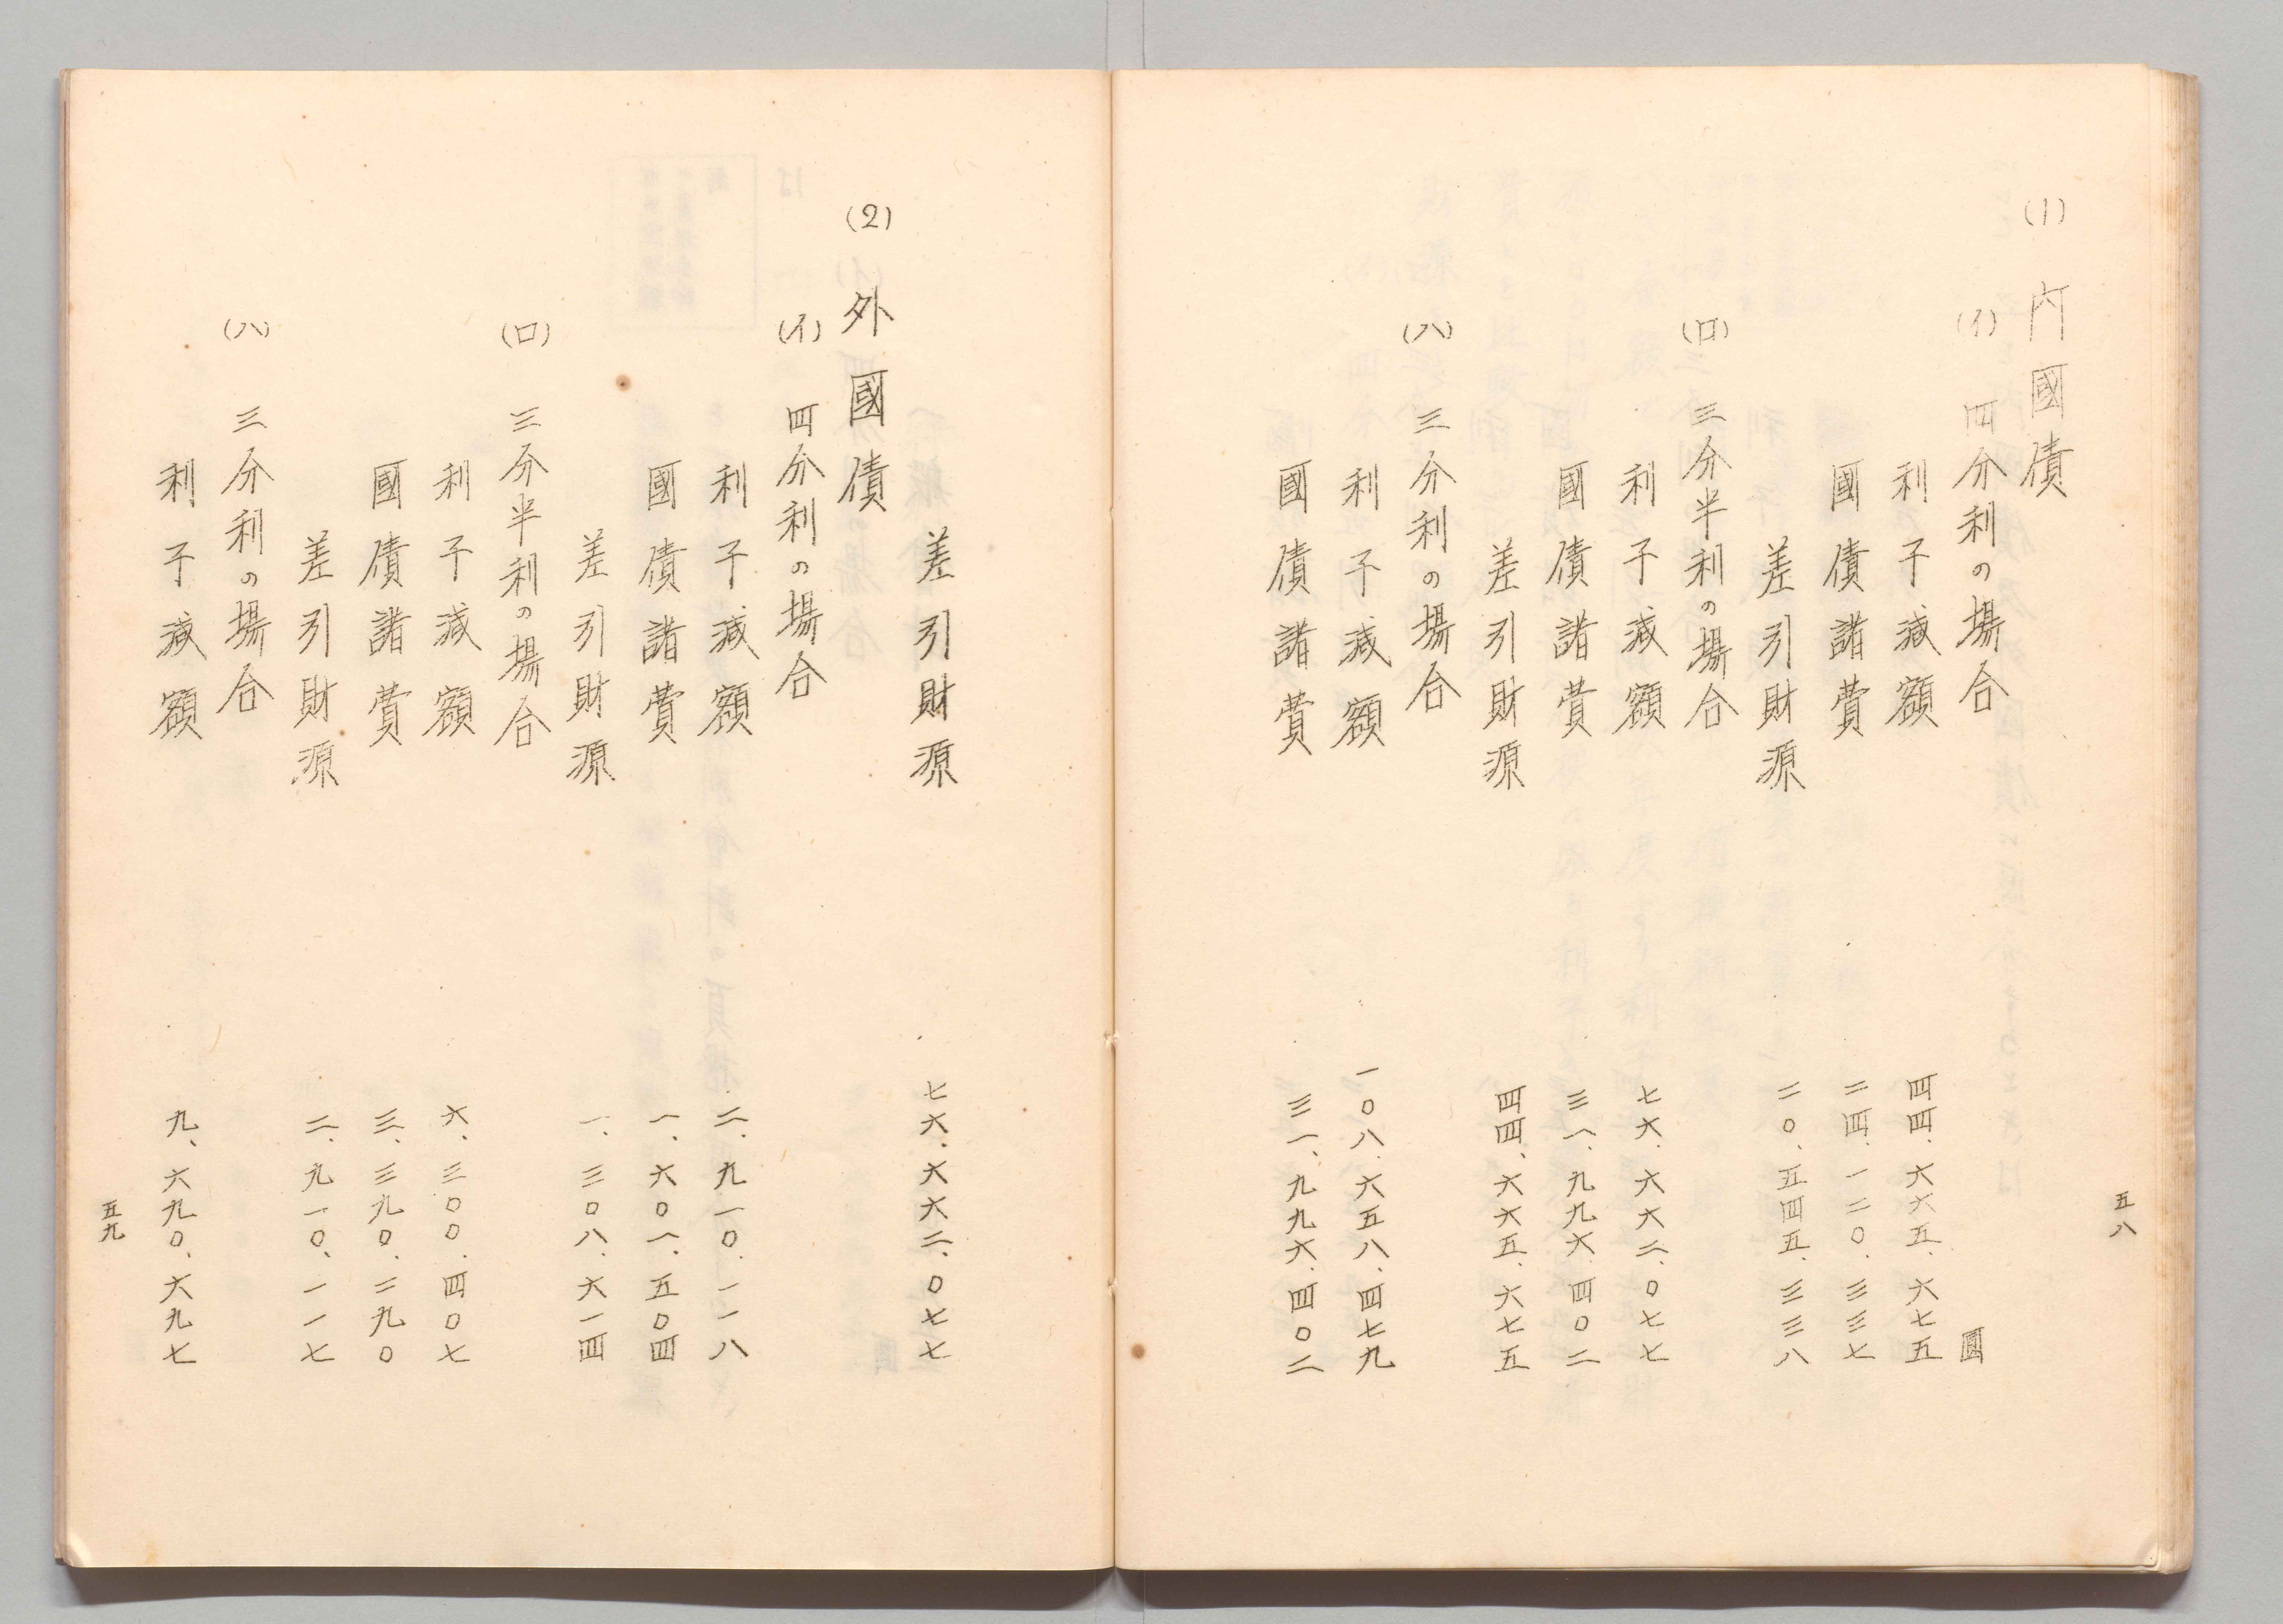 五八
(1) 内國債
(イ) 四分利の場合 圓
利子減額 四四、六六五、六七五
國債諸費 二四、一二〇、三三七
差引財源 二〇、五四五、三三八
(ロ) 三分半利の場合
利子減額 七六、六六二、〇七七
國債諸費 三一、九九六、四〇二
差引財源 四四、六六五、六七五
(ハ) 三分利の場合
利子減額 一〇八、六五八、四七九
國債諸費 三一、九九六、四〇二
差引財源 七六、六六二、〇七七
(2) 外國債
(イ) 四分利の場合
利子減額 二、九一〇、一一八
國債諸費 一、六〇一、五〇四
差引財源 一、三〇八、六一四
(ロ) 三分半利の場合
利子減額 六、三〇〇、四〇七
國債諸費 三、三九〇、二九〇
差引財源 二、九一〇、一一七
(ハ) 三分利の場合
利子減額 九、六九〇、六九七
五九